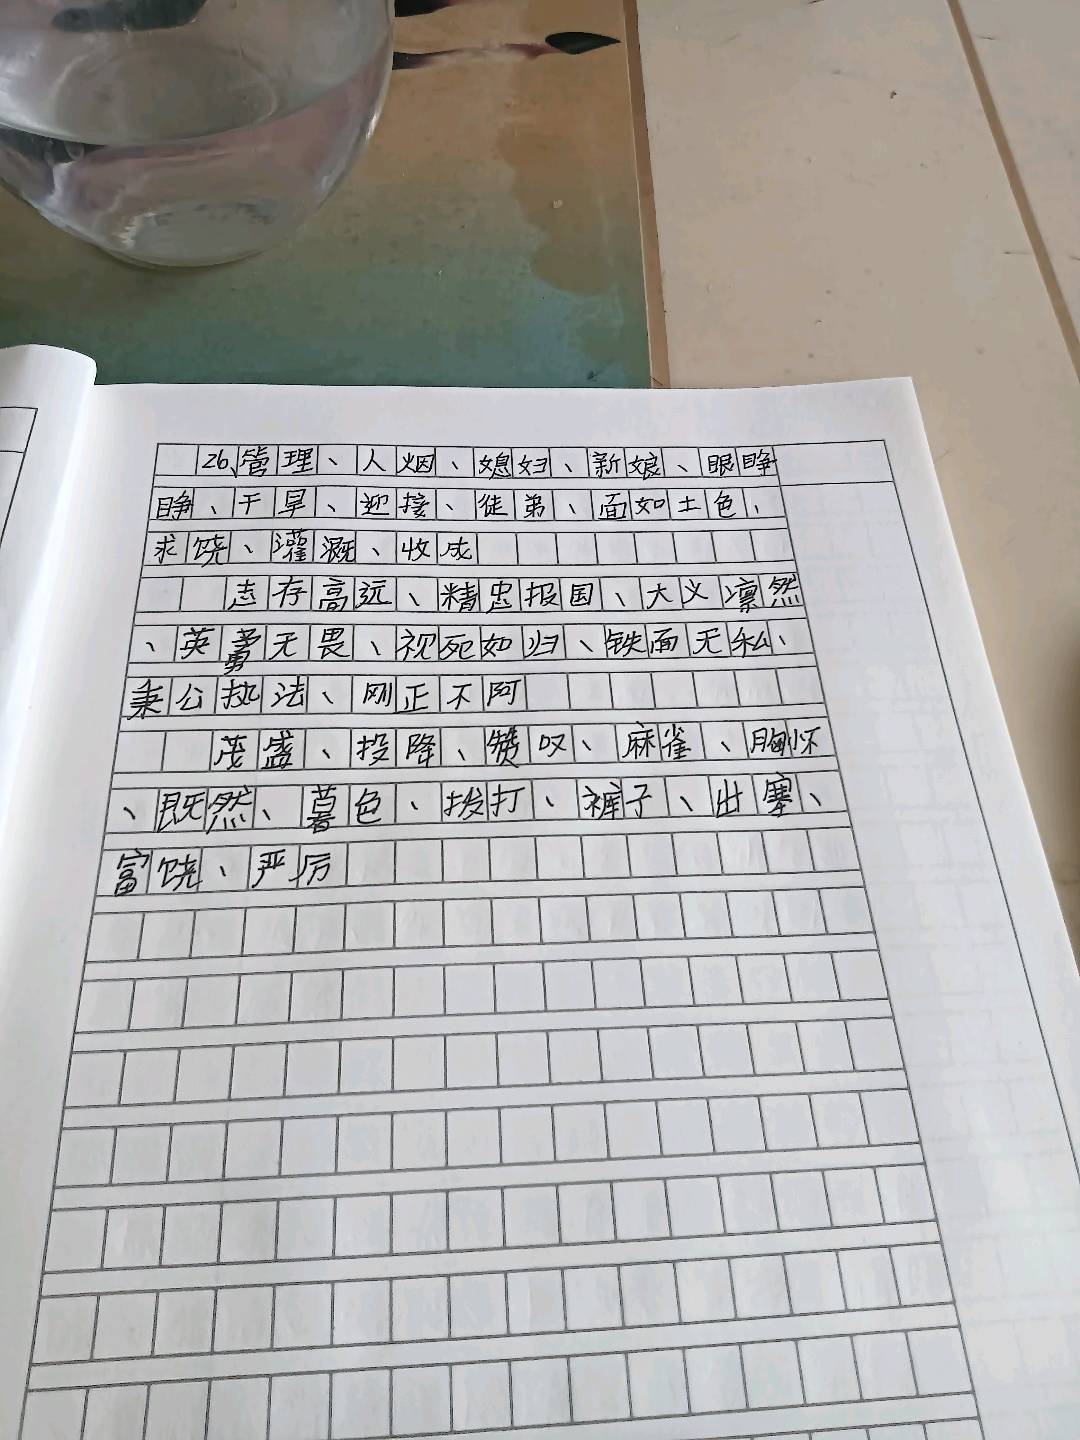 26、管理、人烟、媳妇、新娘、眼睁
睁、干旱、迎接、徒弟、面如土色、
求饶、灌溉、收成
志存高远、精忠报国、大义凛然
、英勇无畏、视死如归、铁面无私、
秉公执法、刚正不阿
茂盛、投降、赞叹、麻雀、胸怀
、既然、暮色、拨打、裤子、出塞、
富饶、严厉